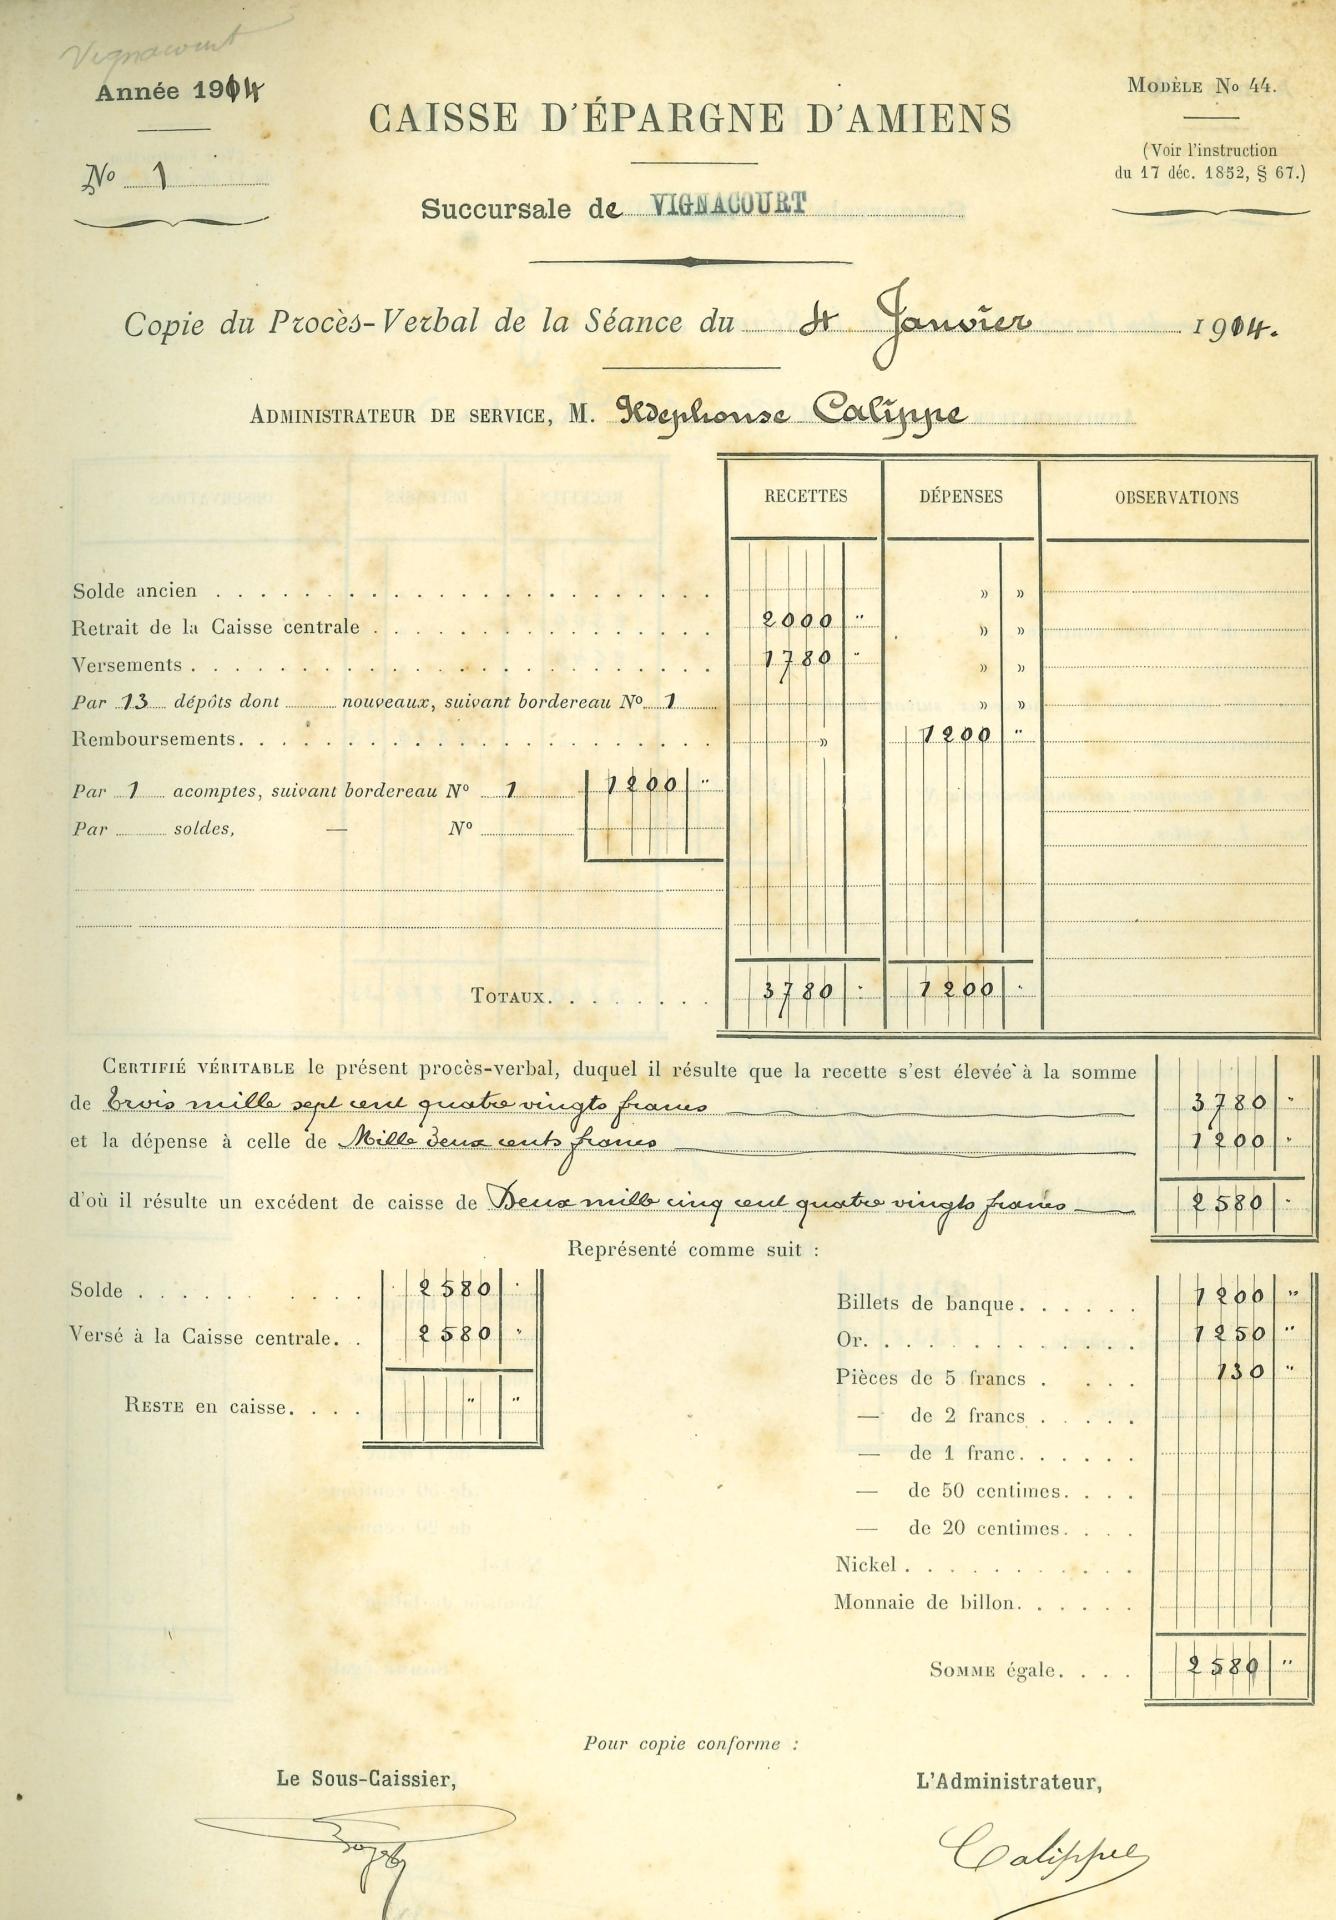 Vignacourt
Année 1914
Modèle No 44.
CAISSE D'ÉPARGNE D'AMIENS
No 1
(Voir l'instruction
du 17 déc. 1852, § 67.)
Succursale de VIGNACOURT
Copie du Procès-Verbal de la Séance du 4 Janvier 1914.
Administrateur de service, M. Ildephonse Calippe
RECETTES DÉPENSES OBSERVATIONS
Solde ancien » »
Retrait de la Caisse centrale 2000 " » »
Versements 1780 " » »
Par 13 dépôts dont nouveaux, suivant bordereau No 1 » »
Remboursements » 1200 "
Par 1 acomptes, suivant bordereau No 1 1200 "
Par soldes, — No
Totaux 3780 " 1200 "
Certifié véritable le présent procès-verbal, duquel il résulte que la recette s'est élevée à la somme
de Trois mille sept cent quatre vingts francs 3780 "
et la dépense à celle de Mille deux cents francs 1200 "
d'où il résulte un excédent de caisse de Deux mille cinq cent quatre vingts francs 2580 "
Représenté comme suit :
Solde 2580 "
Versé à la Caisse centrale 2580 "
Reste en caisse " "
Billets de banque 1200 "
Or 1250 "
Pièces de 5 francs 130 "
— de 2 francs
— de 1 franc
— de 50 centimes
— de 20 centimes
Nickel
Monnaie de billon
Somme égale 2580 "
Pour copie conforme :
Le Sous-Caissier,
L'Administrateur,
Calippe